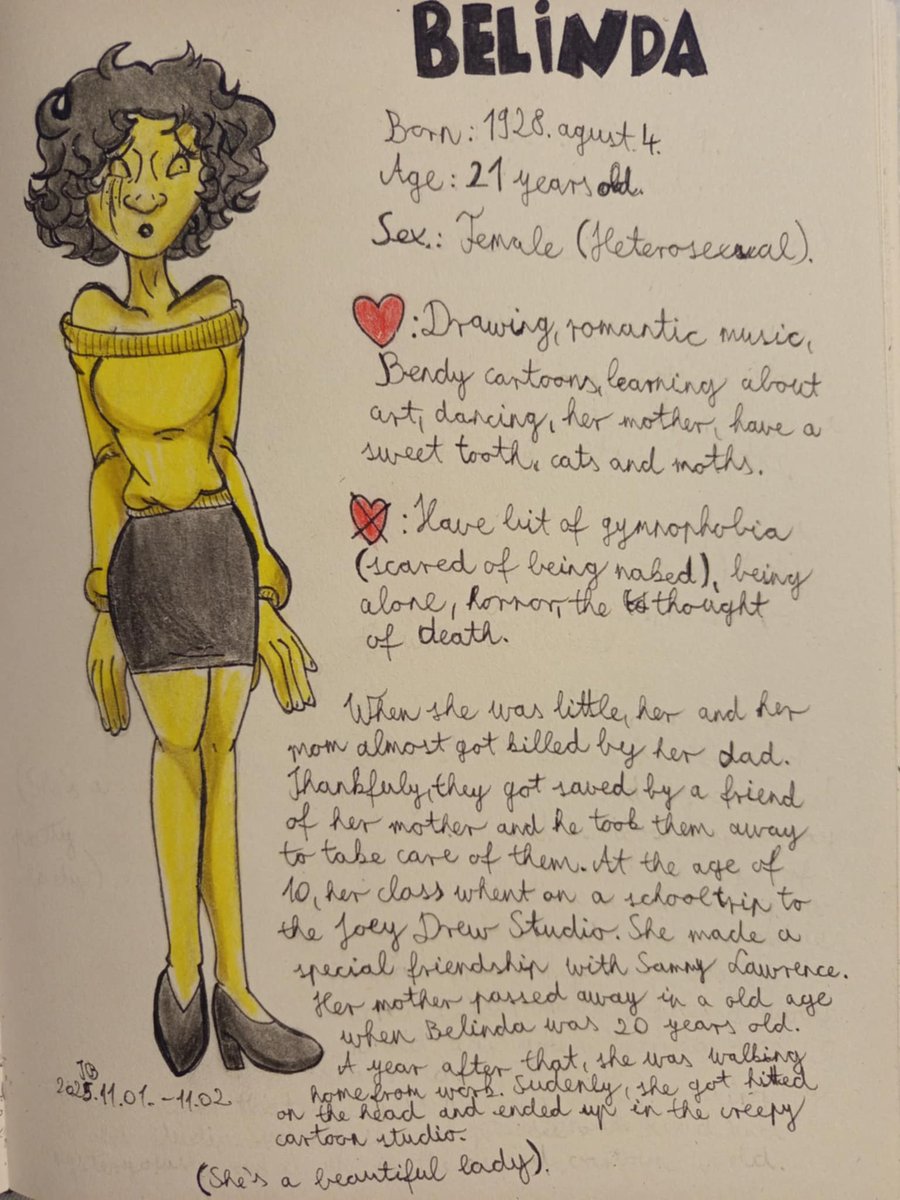 BELiNDA
Born: 1928. agust. 4.
Age: 21 years old.
Sex.: Female (Heterosexual).
: Drawing, romantic music,
Bendy cartoons, learning about
art, dancing, her mother, have a
sweet tooth, cats and moths.
: Have bit of gymnophobia
(scared of being naked), being
alone, horror, the thought
of death.
When she was little, her and her
mom almost got killed by her dad.
Thankfuly, they got saved by a friend
of her mother and he took them away
to take care of them. At the age of
10, her class whent on a school trip to
the Joey Drew Studio. She made a
special friendship with Sammy Lawrence.
Her mother passed away in a old age
when Belinda was 20 years old.
A year after that, she was walking
home from work. Sudenly, she got hitted
on the head and ended up in the creepy
cartoon studio.
(She's a beautiful lady).
JB
2025.11.01. - 11.02